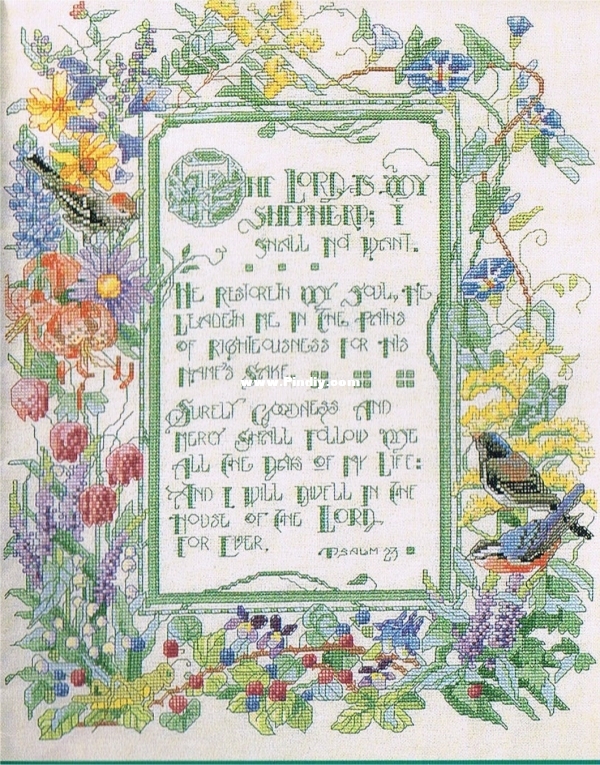 THE LORD IS MY
SHEPHERD; I
SHALL NOT WANT.
HE RESTORETH MY SOUL, HE
LEADETH ME IN THE PATHS
OF RIGHTEOUSNESS FOR HIS
NAME'S SAKE.
www.PinDIY.com
SURELY GOODNESS AND
MERCY SHALL FOLLOW ME
ALL THE DAYS OF MY LIFE:
AND I WILL DWELL IN THE
HOUSE OF THE LORD
FOR EVER.
PSALM 23